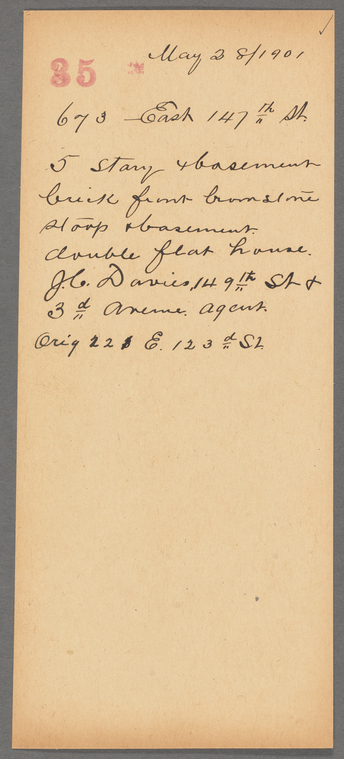 May 28/1901
85
673 East 147th St.
5 story & basement
brick front brownstone
stoop & basement.
double flat house.
J.C. Davies, 149th St &
3d Avenue. agent.
Orig 221 E. 123d St.